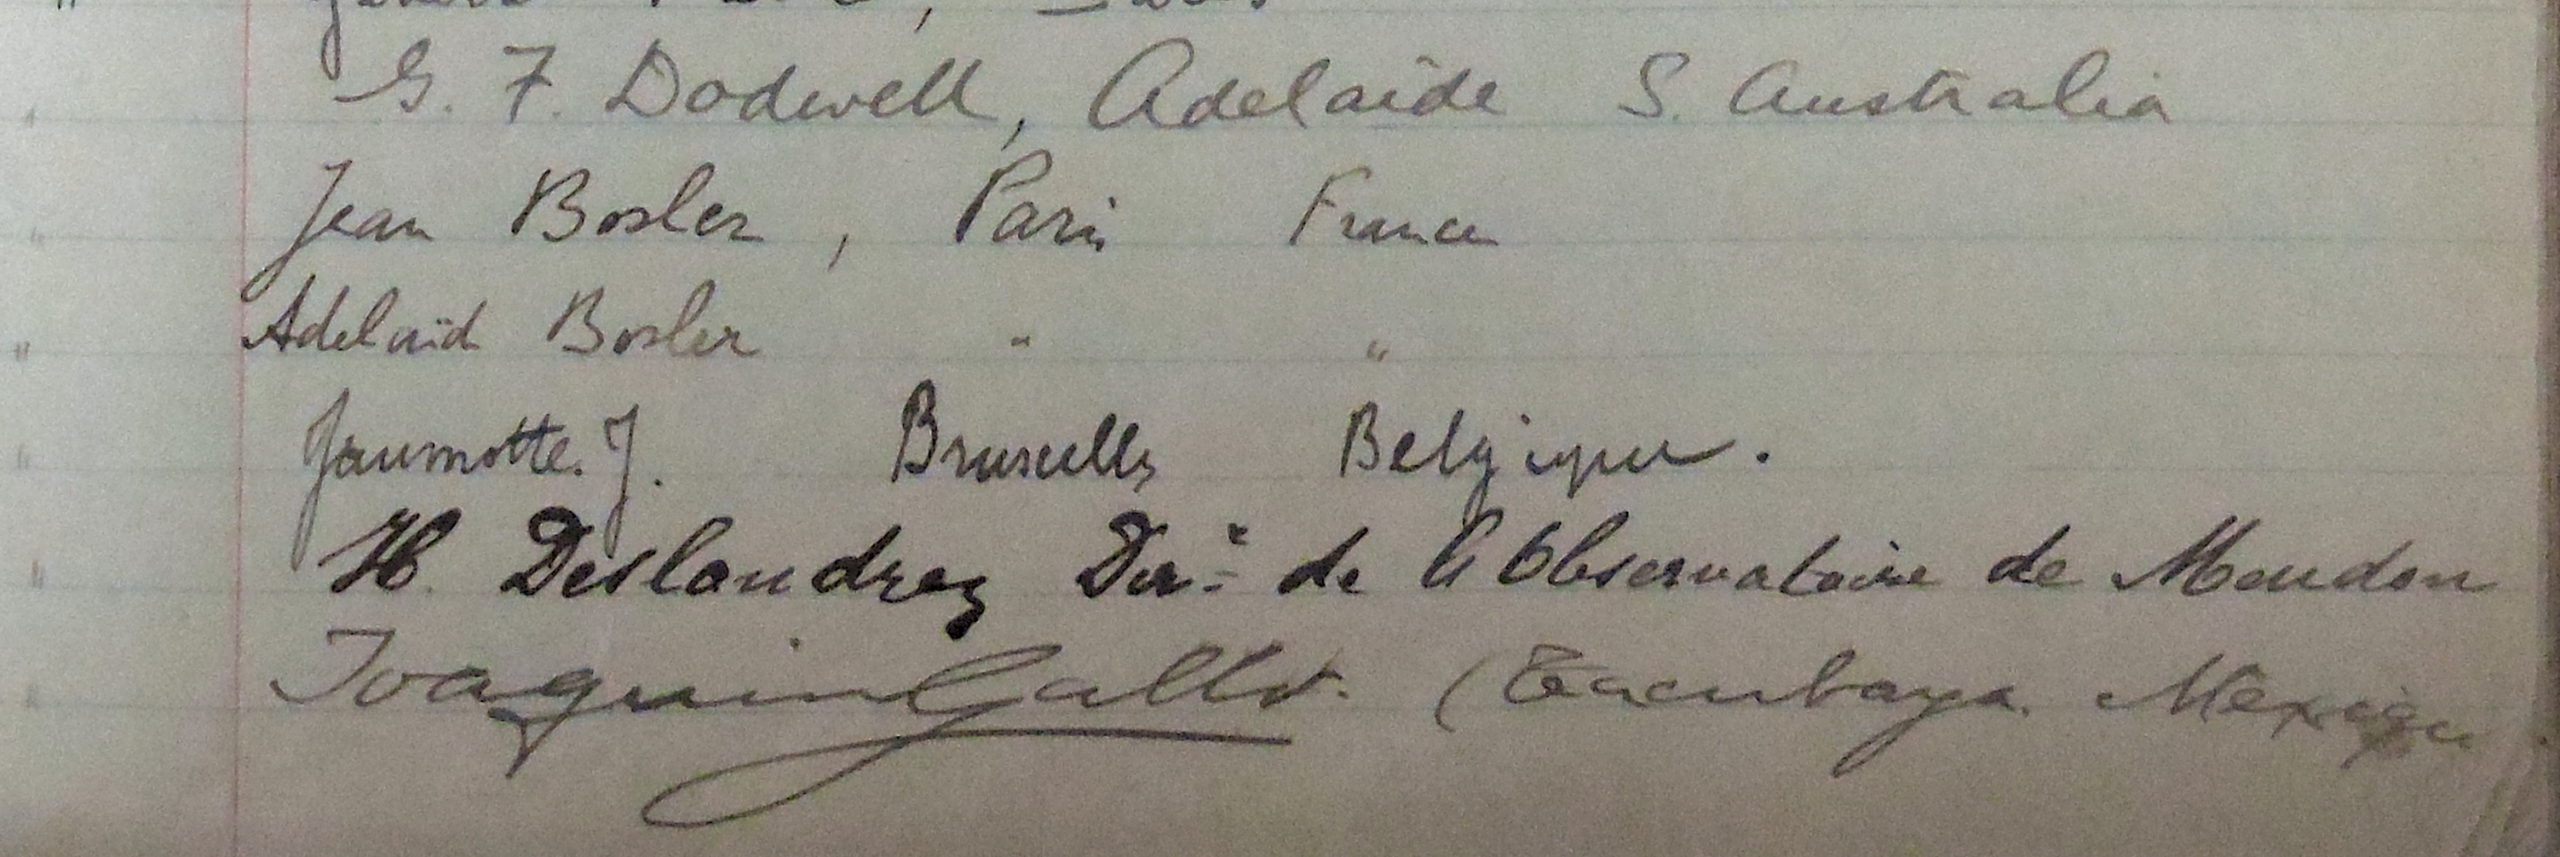 G. F. Dodwell, Adelaide S. Australia
Jean Bosler, Paris France
Adelaïd Bosler " "
Jaumotte. J. Bruxelles Belgique.
H. Deslandres Dir.r de l'Observatoire de Meudon
Joaquin Gallo. (Tacubaya. Mexique